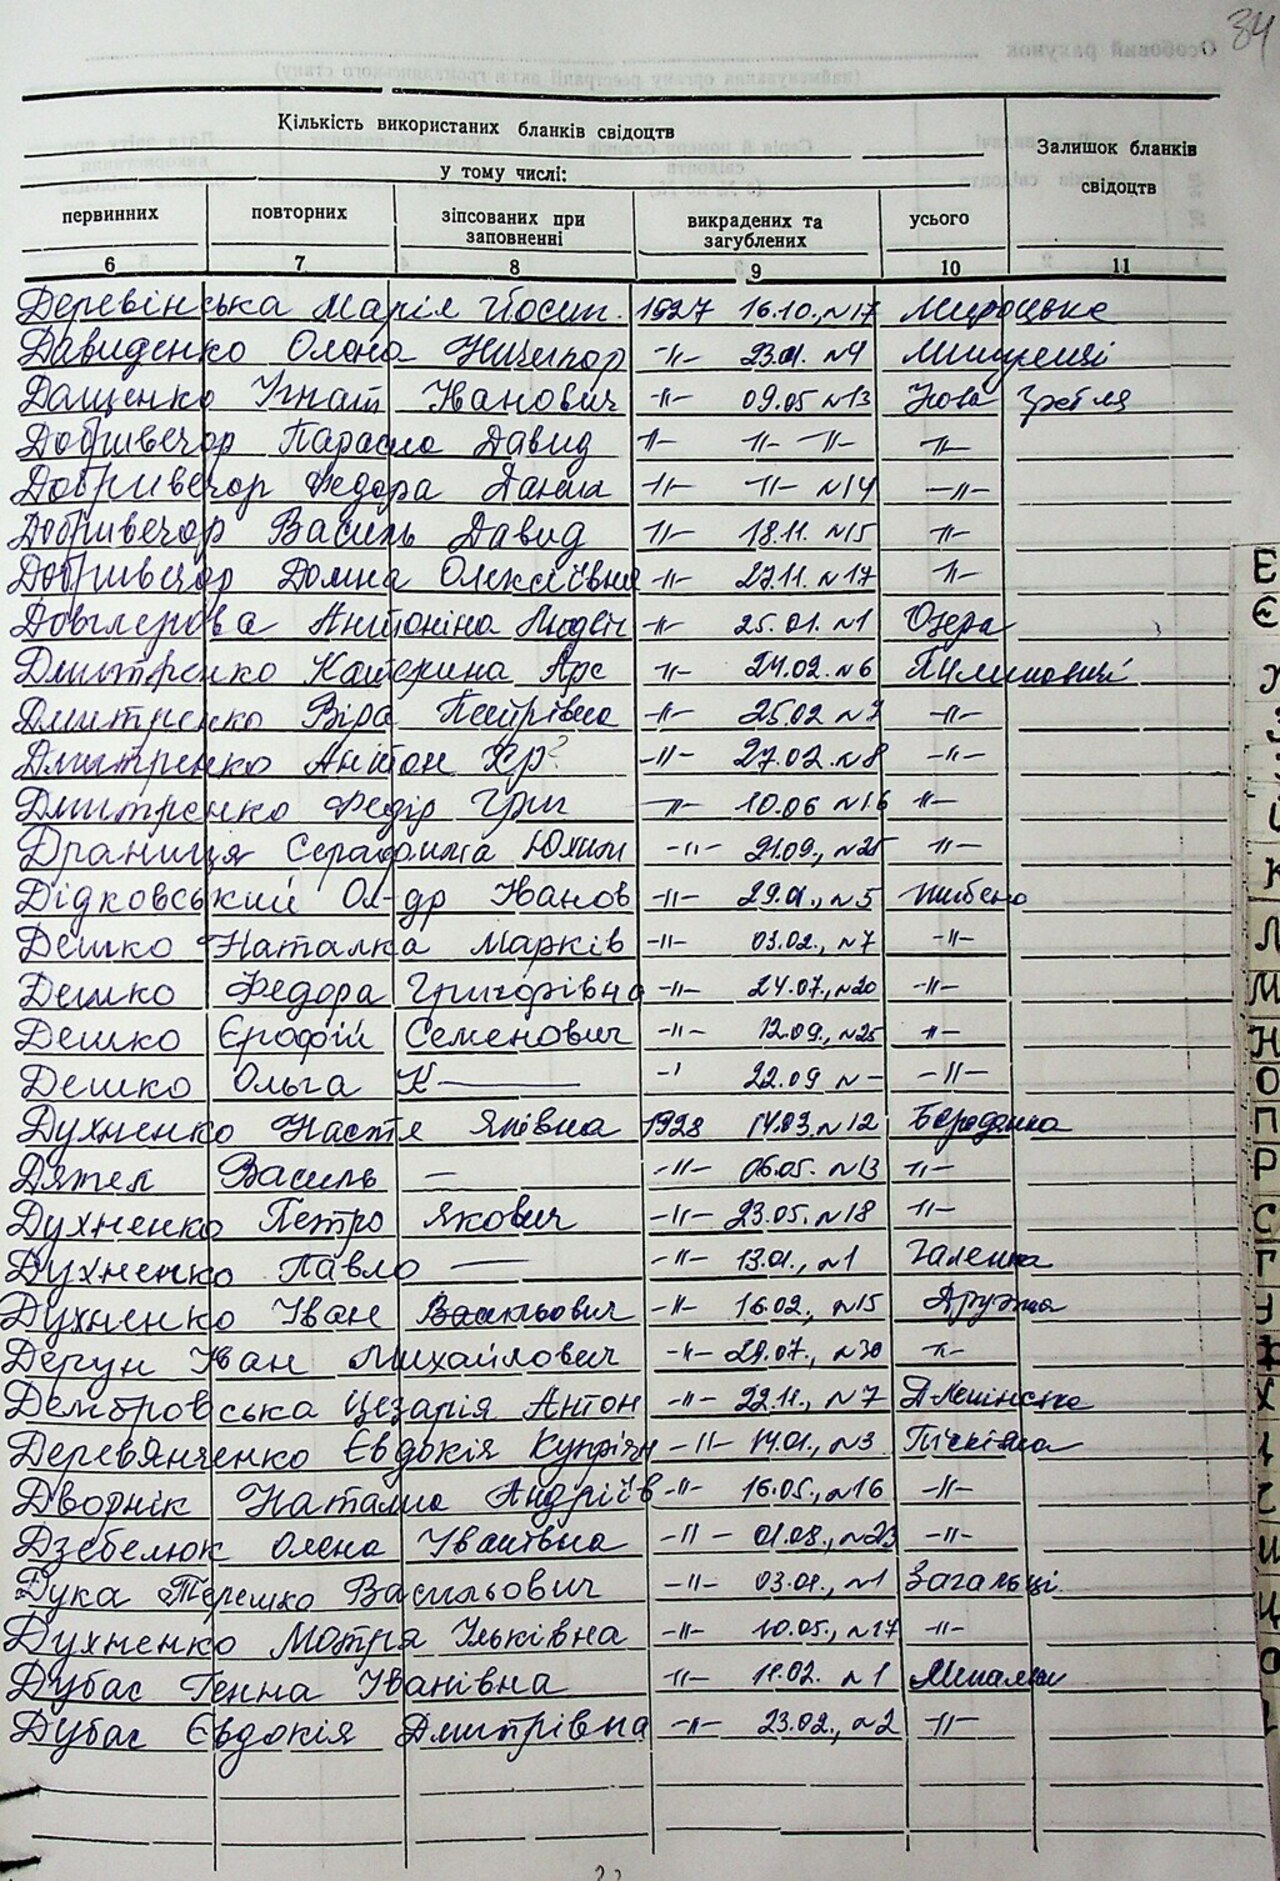 34
Кількість використаних бланків свідоцтв
Залишок бланків свідоцтв
у тому числі:
первинних повторних зіпсованих при заповненні викрадених та загублених усього
6 7 8 9 10 11
Деревінська Марія Йосип. 1927 16.10., №17 Мироцьке
Давиденко Олена Ничипор -"- 23.01. №4
Дащенко Ігнат Іванович -"- 09.05 №13 Нова Гребля
Добривечор Параска Давид -"- -"- -"- -"-
Добривечор Федора Данила -"- -"- №14 -"-
Добривечор Василь Давид -"- 18.11. №15 -"-
Добривечор Домна Олексіївна -"- 27.11. №17 -"-
Антоніна -"- 25.01. №1 Озера
Дмитренко Катерина Арс -"- 24.02. №6
Дмитренко Віра Петрівна -"- 25.02 №7 -"-
Дмитренко Антон Хр? -"- 27.02. №8 -"-
Дмитренко Федір Григ -"- 10.06 №16 -"-
Драниця Серафима Юхим -"- 21.09., №25 -"-
Дідковський Ол-др Іванов -"- 29.01., №5 Шибено
Дешко Наталка Марків -"- 03.02., №7 -"-
Дешко Федора Григорівна -"- 24.07., №20 -"-
Дешко Єрофій Семенович -"- 12.09., №25 -"-
Дешко Ольга К— -"- 22.09 №- -"-
Духненко Настя Яківна 1928 14.03. №12 Бородянка
Дятел Василь — -"- 06.05. №13 -"-
Духненко Петро Якович -"- 23.05. №18 -"-
Духненко Павло — -"- 13.01., №1 Галенка
Духненко Іван Васильович -"- 16.02., №15 Дружня
Дергун Іван Михайлович -"- 29.07., №30 -"-
Дембровська Цезарія Антон -"- 22.11., №7
Дерев'янченко Євдокія Купріян -"- 14.01., №3 Пісківка
Дворнік Наталія Андріїв -"- 16.05., №16 -"-
Дзебелюк Олена Іванівна -"- 01.08., №23 -"-
Дука Терешко Васильович -"- 03.01., №1 Загальці
Духненко Мотря Ільківна -"- 10.05., №17 -"-
Дубас Ганна Іванівна -"- 11.02. №1
Дубас Євдокія Дмитрівна -"- 23.02., №2 -"-
Е
Є
К
Л
М
Н
О
П
Р
С
Т
У
Х